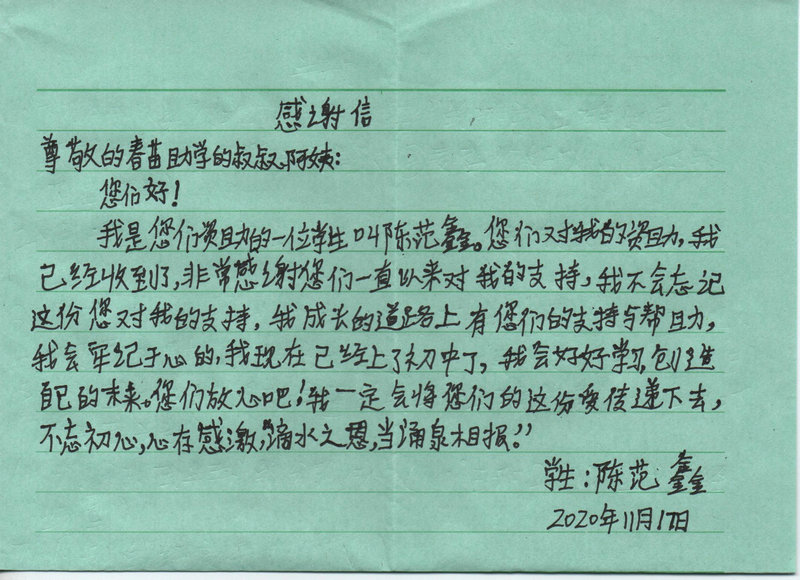 感谢信
尊敬的春苗助学的叔叔阿姨:
您们好!
我是您们资助的一位学生叫陈范鑫。您们对我的资助,我
已经收到了,非常感谢您们一直以来对我的支持,我不会忘记
这份您对我的支持,我成长的道路上有您们的支持与帮助,
我会牢纪于心的,我现在已经上了初中了,我会好好学习,创造
自己的未来。您们放心吧!我一定会将您们的这份爱传递下去,
不忘初心,心存感激,“滴水之恩,当涌泉相报!”
学生:陈范鑫
2020年11月17日